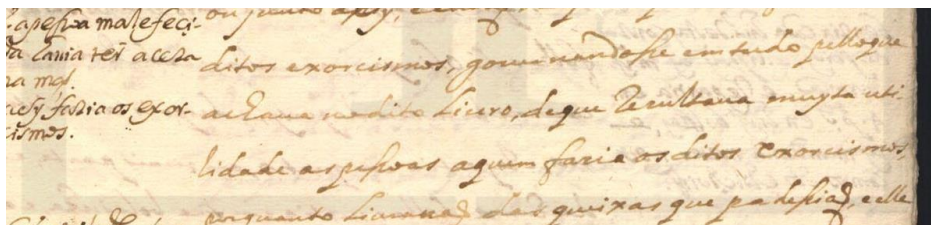 apesoa malefeci-
da cauia ter acesa
na mql
acsy fazia os exor-
cismos.
ditos exorcismos, gouernandosse em tudo pello que
achaua no dito Liuro, de que Rezultaua muyta uti-
lidade as pesoas a quem fazia os ditos exorcismos,
porquanto Liurauaõ das queixas que padesiaõ, e elle